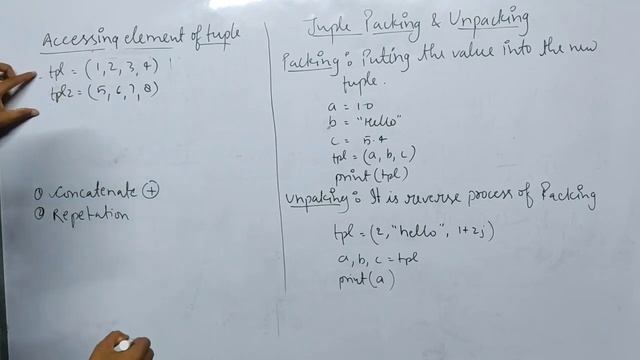 Accessing element of tuple
tpl = (1, 2, 3, 4)
tpl2 = (5, 6, 7, 8)
① Concatenate +
② Repetation
Tuple Packing & Unpacking
Packing : Puting the value into the new
tuple.
a = 10
b = "Hello"
c = 5.4
tpl = (a, b, c)
print(tpl)
Unpaking : It is reverse process of Packing
tpl = (2, "hello", 1+2j)
a, b, c = tpl
print(a)